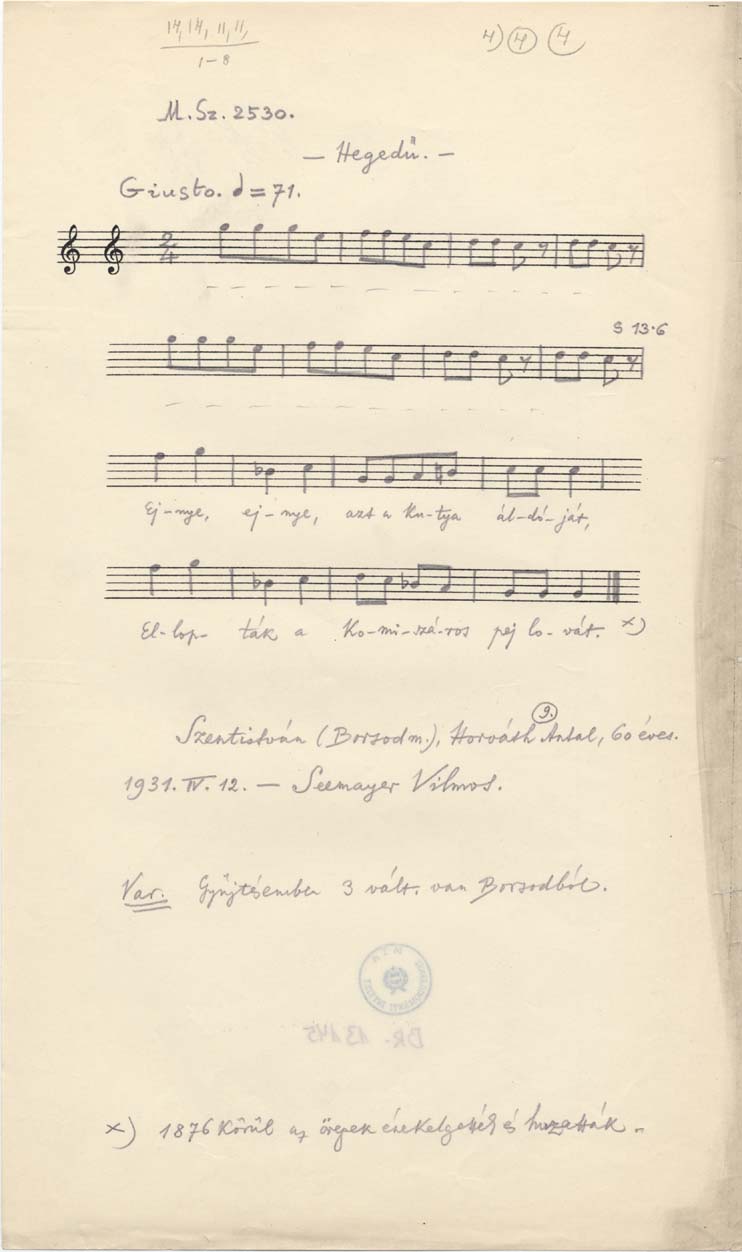 14, 14, 11, 11,
1-8
4) 4 4
M. Sz. 2530.
— Hegedű. —
Giusto. = 71.
2/4
S 13·6
Ej-nye, ej-nye, azt a Ku-tya ál-dó-ját,
El-lop-ták a Ko-mi-szá-ros pej lo-vát. x)
9.
Szentistván (Borsod m.), Horváth Antal, 60 éves.
1931. IV. 12. — Seemayer Vilmos.
Var. Gyűjtésemben 3 vált. van Borsodból.
DR. 13145
x) 1876 Körül az öregek énekelgették és huzatták.